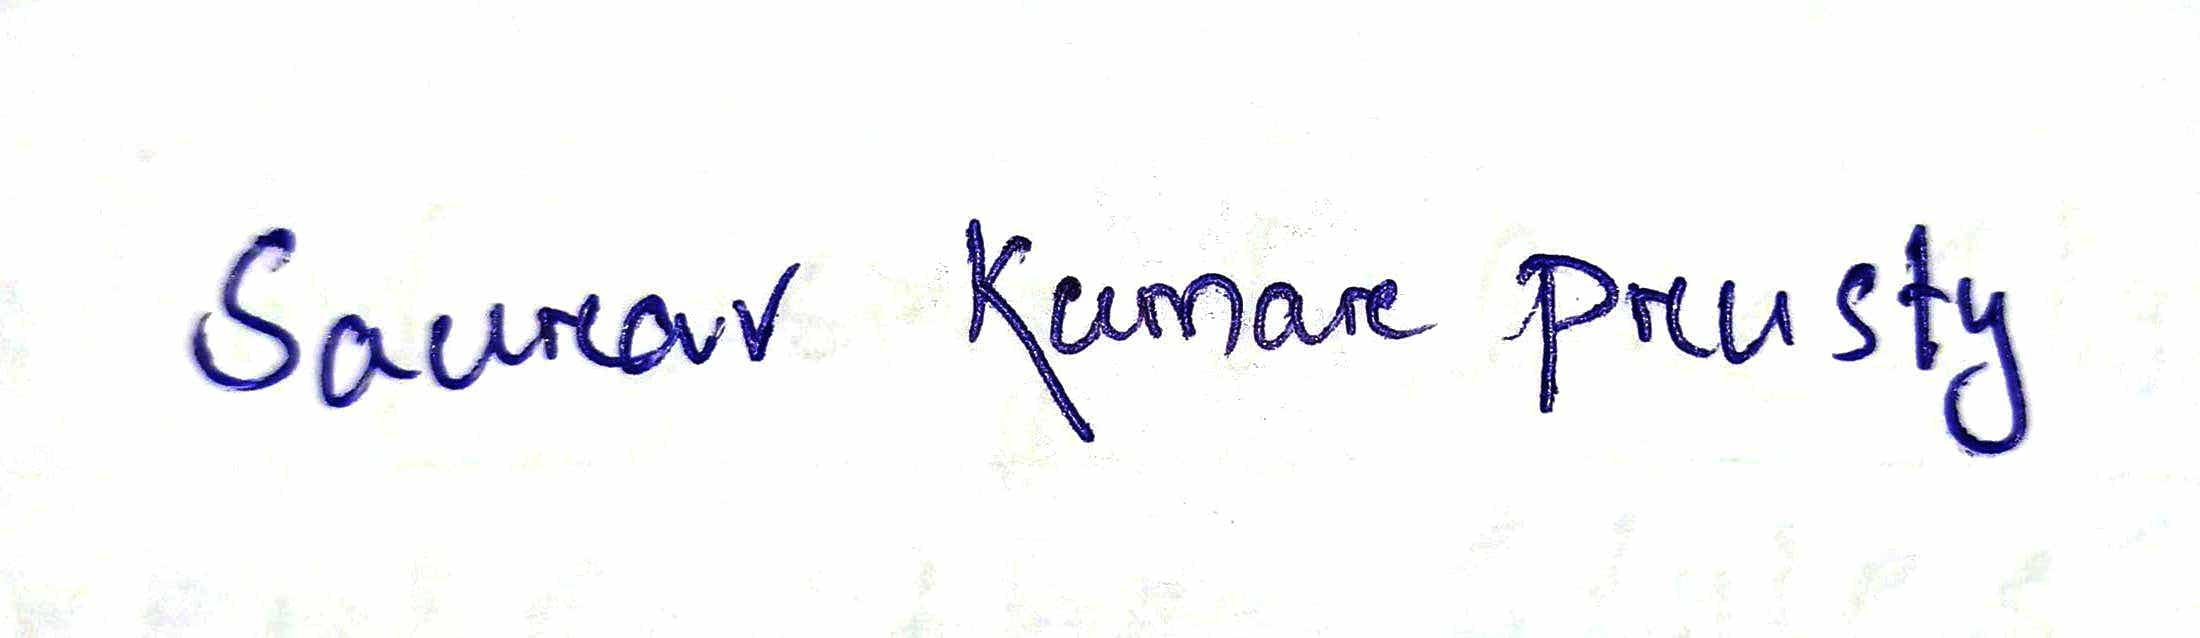 Saurav Kumar Prusty